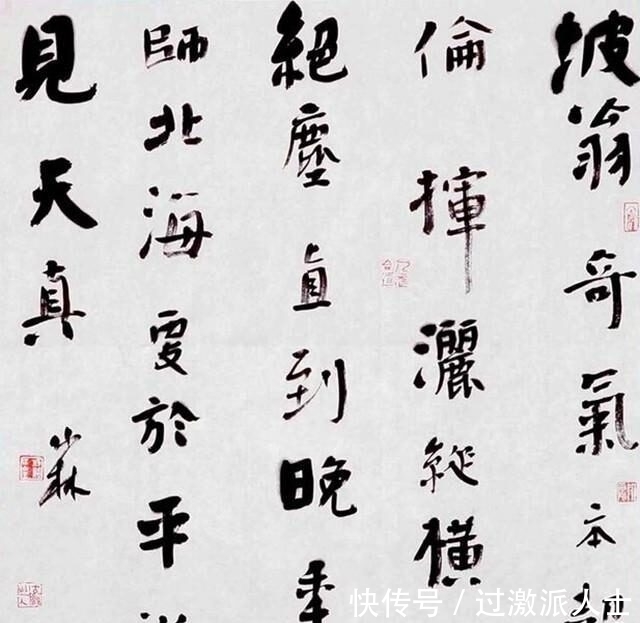 坡翁奇氣本
倫揮灑縱橫
絕塵直到晚
師北海更於平
見天真
快传号 / 过激派人士